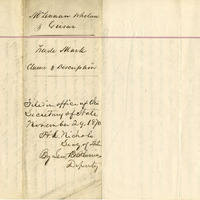 McLennan Whelan
& Grisar
Trade Mark
Claim & Description
Filed in office of the
Secretary of State
November 29, 1870
H. L. Nichols
Secy of State
By
Deputy